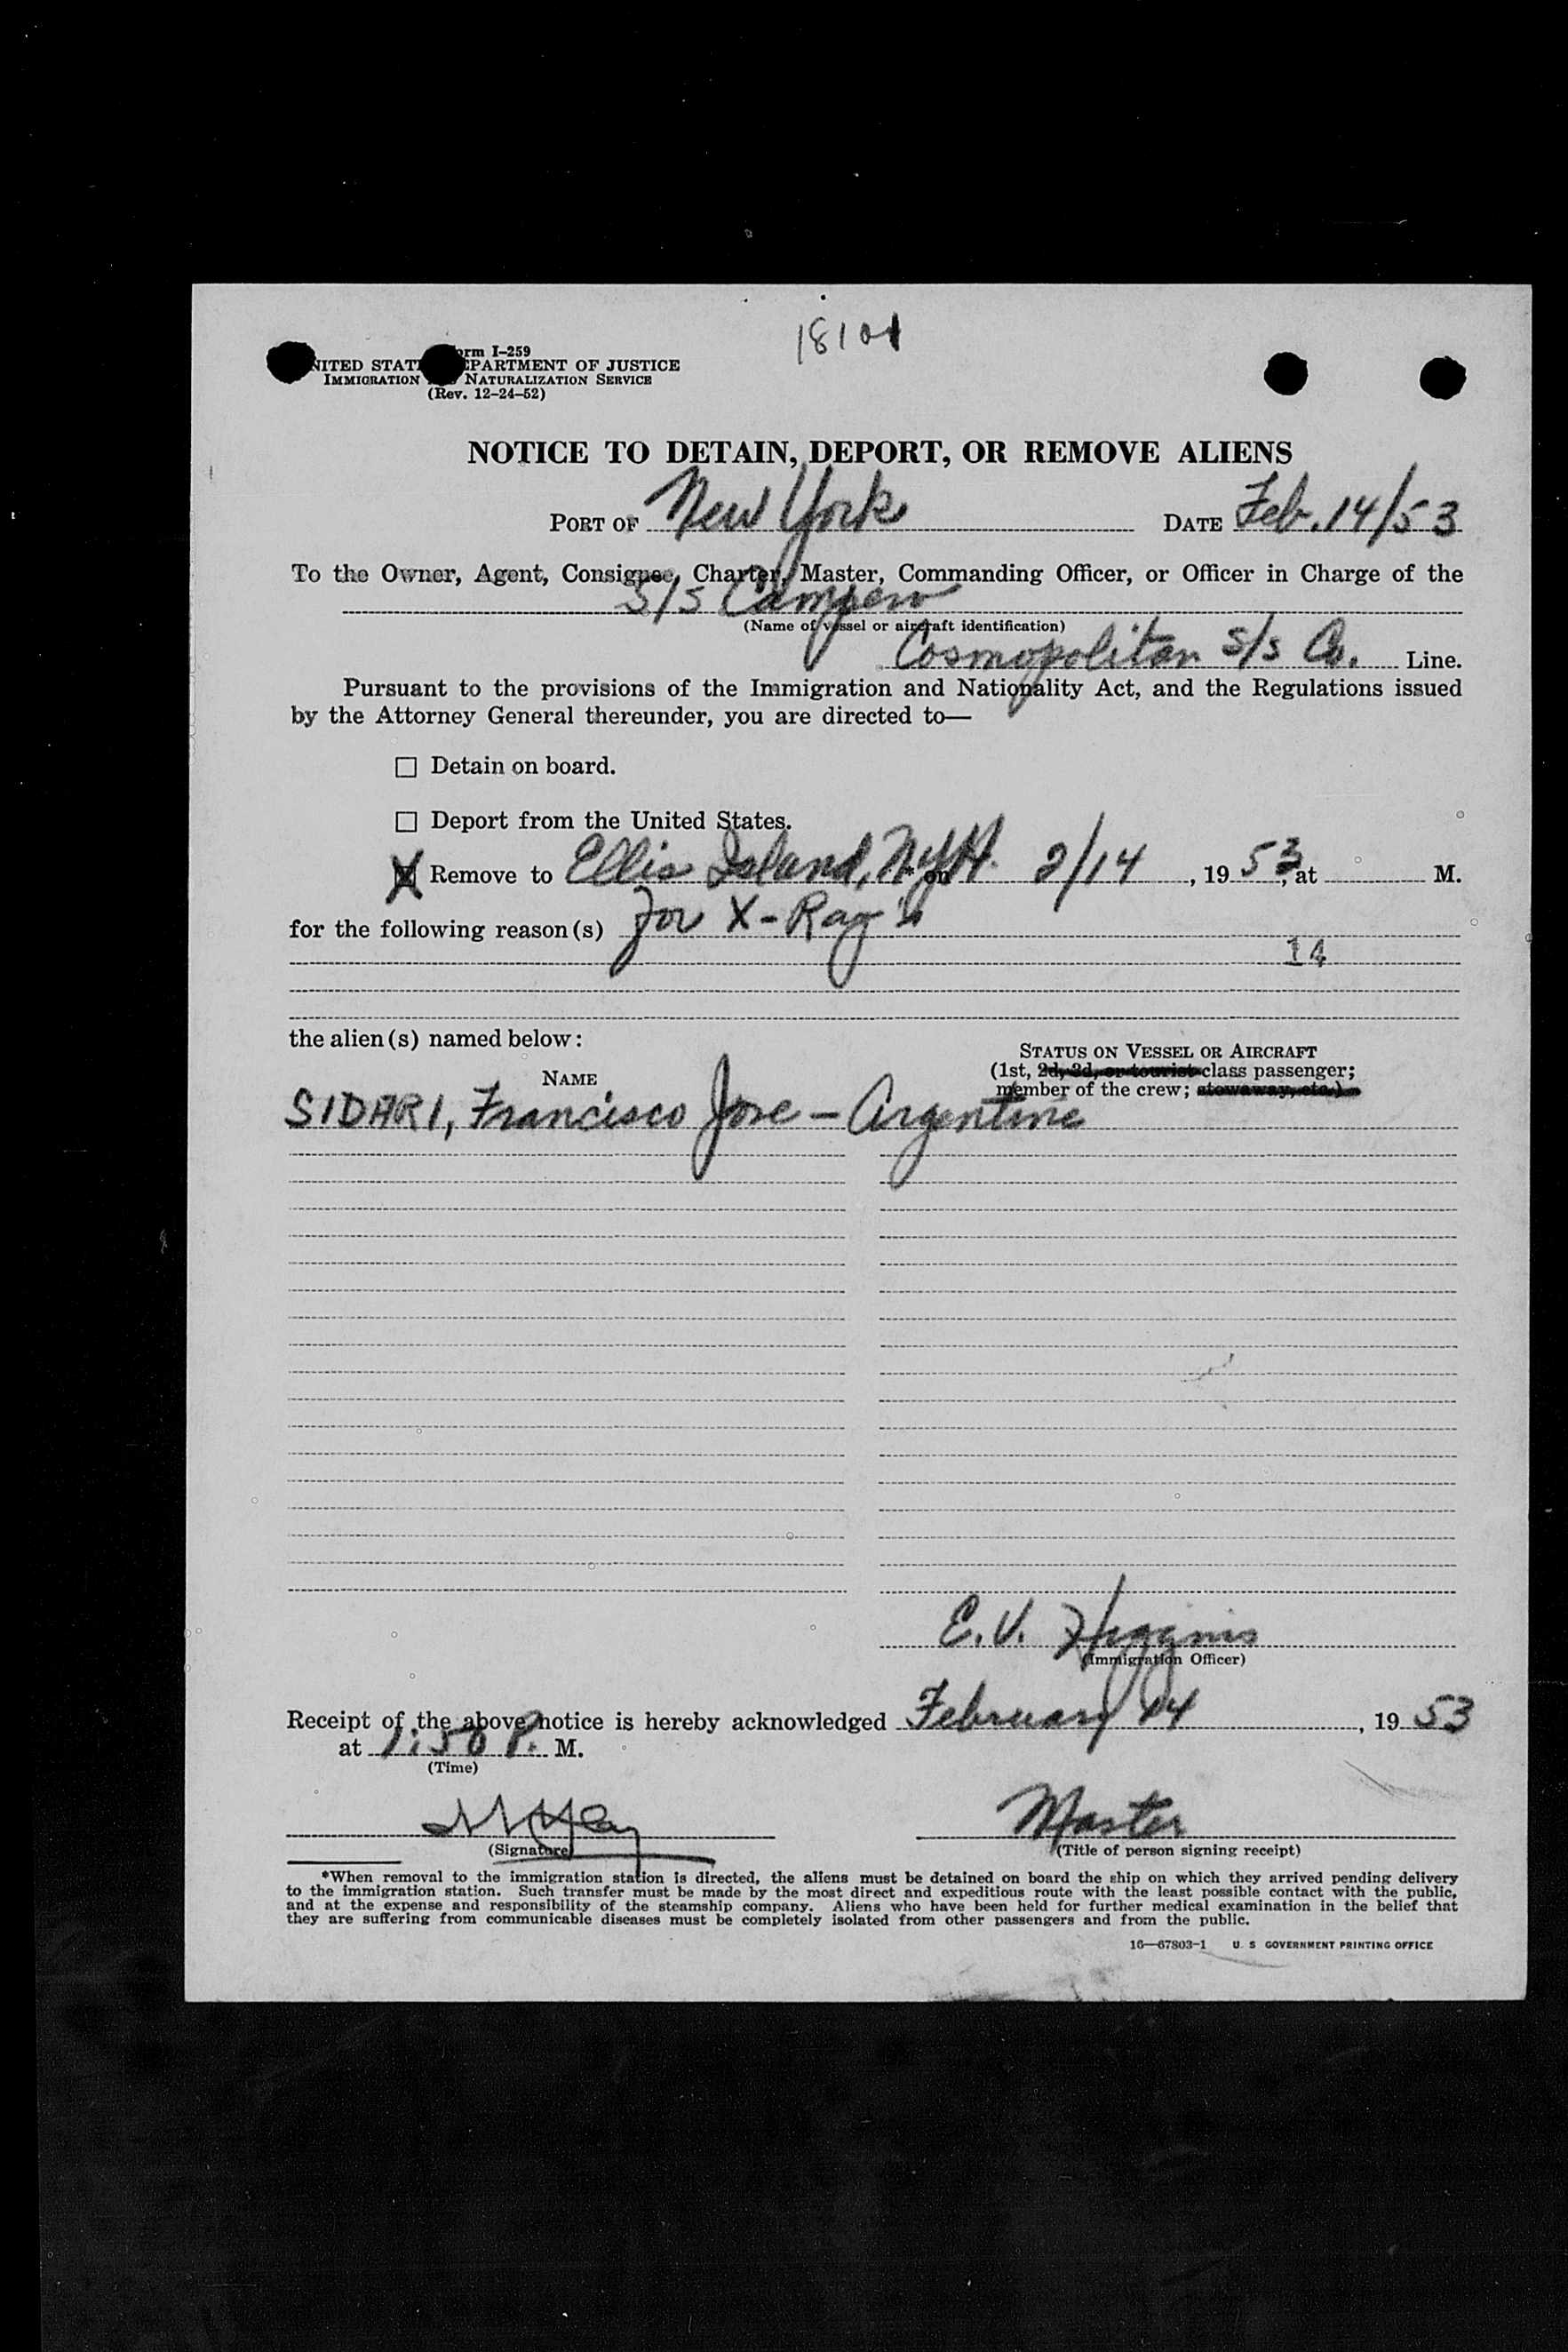 18101
orm I-259
NITED STAT EPARTMENT OF JUSTICE
IMMIGRATION NATURALIZATION SERVICE
(Rev. 12-24-52)
NOTICE TO DETAIN, DEPORT, OR REMOVE ALIENS
PORT OF New York DATE Feb. 14/53
To the Owner, Agent, Consignee, Charter, Master, Commanding Officer, or Officer in Charge of the
S/S Campero
(Name of vessel or aircraft identification)
Cosmopolitan S/S Co. Line.
Pursuant to the provisions of the Immigration and Nationality Act, and the Regulations issued
by the Attorney General thereunder, you are directed to—
☐ Detain on board.
☐ Deport from the United States.
X Remove to Ellis Island, NYH. * on 2/14, 1953, at M.
for the following reason(s) for X-Ray's
14
the alien(s) named below:
STATUS ON VESSEL OR AIRCRAFT
NAME (1st, 2d, 3d, or tourist class passenger;
member of the crew; stowaway, etc.)
SIDARI, Francisco Jose - Argentine
E.V. Higgins
(Immigration Officer)
Receipt of the above notice is hereby acknowledged February 14, 1953
at 1:50 P. M.
(Time)
Master
(Signature) (Title of person signing receipt)
*When removal to the immigration station is directed, the aliens must be detained on board the ship on which they arrived pending delivery
to the immigration station. Such transfer must be made by the most direct and expeditious route with the least possible contact with the public,
and at the expense and responsibility of the steamship company. Aliens who have been held for further medical examination in the belief that
they are suffering from communicable diseases must be completely isolated from other passengers and from the public.
16—67803-1 U. S GOVERNMENT PRINTING OFFICE